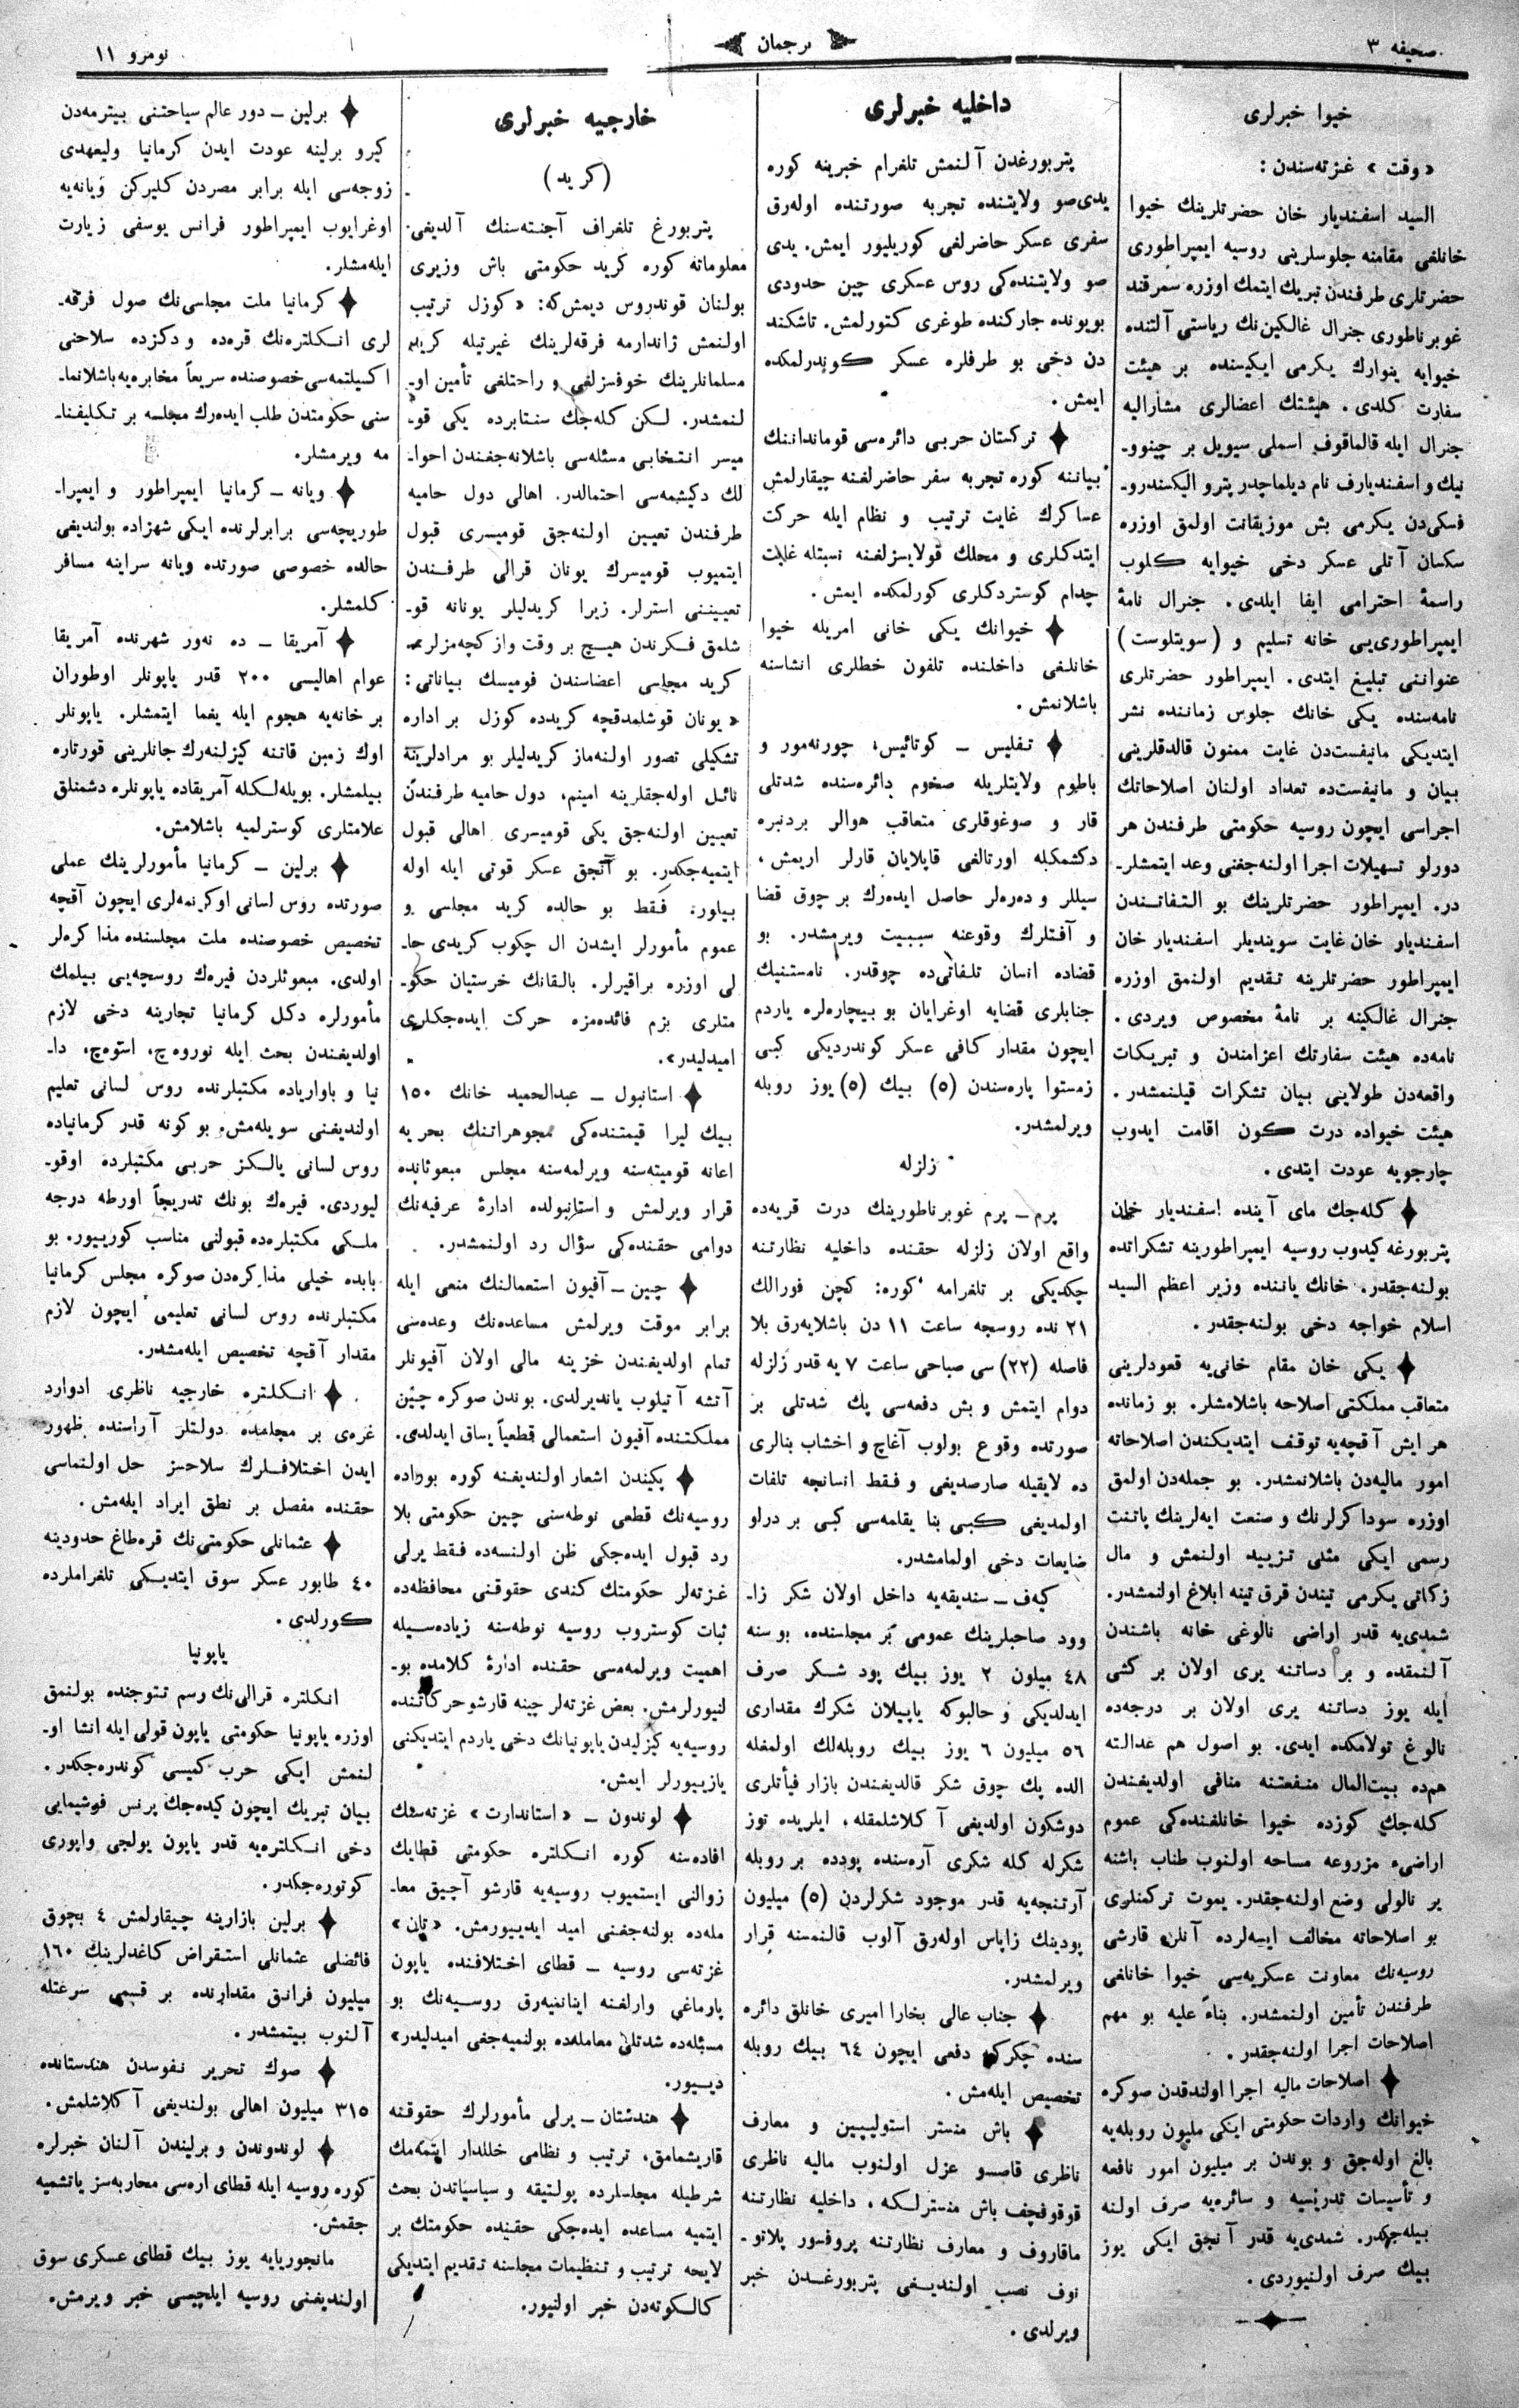 صحیفه ٣
ترجمان
نومرو ١١
خیوا خبرلری
«وقت» غزته‌سندن:
السید اسفندیار خان حضرتلرینك خیوا
خانلغی مقامنه جلوسلرینی روسیه ایمپراطوری
حضرتلری طرفندن تبریك ایتمك اوزره سمرقند
غوبرناطوری جنرال غالکین‌نك ریاستی آلتنده
خیوایه ینوارك یکرمی ایکیسنده بر هیئت
سفارت کلدی. هیئتك اعضالری مشارالیه
جنرال ایله قالماقوف اسملی سیویل بر چینوو-
نیك و اسفندیارف نام دیلماچدر پترو الیکسندرو-
فسکی‌دن یکرمی بش موزیقانت اولمق اوزره
سکسان آتلی عسکر دخی خیوایه کلوب
راسمهٔ احترامی ایفا ایلدی. جنرال نامهٔ
ایمپراطوری‌یی خانه تسلیم و (سویتلوست)
عنواننی تبلیغ ایتدی. ایمپراطور حضرتلری
نامه‌سنده یکی خانك جلوس زماننده نشر
ایتدیکی مانیفست‌دن غایت ممنون قالدقلرینی
بیان و مانیفست‌ده تعداد اولنان اصلاحاتك
اجراسی ایچون روسیه حکومتی طرفندن هر
دورلو تسهیلات اجرا اولنه‌جغنی وعد ایتمشلر-
در. ایمپراطور حضرتلرینك بو التفاتندن
اسفندیار خان غایت سویندیلر اسفندیار خان
ایمپراطور حضرتلرینه تقدیم اولنمق اوزره
جنرال غالکینه بر نامهٔ مخصوص ویردی.
نامه‌ده هیئت سفارتك اعزامندن و تبریکات
واقعه‌دن طولایی بیان تشکرات قیلنمشدر.
هیئت خیواده درت کون اقامت ایدوب
چارجویه عودت ایتدی.
✦ کله‌جك مای آینده اسفندیار خان
پتربورغه کیدوب روسیه ایمپراطورینه تشکراتده
بولنه‌جقدر. خانك یاننده وزیر اعظم السید
اسلام خواجه دخی بولنه‌جقدر.
✦ یکی خان مقام خانی‌یه قعودلرینی
متعاقب مملکتی اصلاحه باشلامشلر. بو زمانده
هر ایش آقچه‌یه توقف ایتدیکندن اصلاحاته
امور مالیه‌دن باشلانمشدر. بو جمله‌دن اولمق
اوزره سوداکرلرنك و صنعت ایه‌لرینك پاتنت
رسمی ایکی مثلی تزیید اولنمش و مال
زکاتی یکرمی تیندن قرق تینه ابلاغ اولنمشدر.
شمدی‌یه قدر اراضی نالوغی خانه باشندن
آلنمقده و بر دساتنه یری اولان بر کشی
ایله یوز دساتنه یری اولان بر درجه‌ده
نالوغ تولامکده ایدی. بو اصول هم عدالته
هم‌ده بیت‌المال منفعتنه منافی اولدیغندن
کله‌جك کوزده خیوا خانلغنده‌کی عموم
اراضیء مزروعه مساحه اولنوب طناب باشنه
یر نالولی وضع اولنه‌جقدر. یموت ترکمنلری
بو اصلاحاته مخالف ایسه‌لرده آنلره قارشی
روسیه‌نك معاونت عسکریه‌سی خیوا خانلغی
طرفندن تأمین اولنمشدر. بناءً علیه بو مهم
اصلاحات اجرا اولنه‌جقدر.
✦ اصلاحات مالیه اجرا اولندقدن صوکره
خیوانك واردات حکومتی ایکی ملیون روبله‌یه
بالغ اوله‌جق و بوندن بر میلیون امور نافعه
و تأسیسات تدریسیه و سائره‌یه صرف اولنه
بیله‌جکدر. شمدی‌یه قدر آنجق ایکی یوز
بیك صرف اولنیوردی.
داخلیه خبرلری
پتربورغدن آلنمش تلغرام خبرینه کوره
یدی‌صو ولایتنده تجربه صورتنده اوله‌رق
سفری عسکر حاضرلغی کوریلیور ایمش. یدی
صو ولایتنده‌کی روس عسکری چین حدودی
بویونده جارکنده طوغری کتورلمش. تاشکند
دن دخی بو طرفلره عسکر کوندرلمکده
ایمش.
✦ ترکستان حربی دائره‌سی قوماندانینك
بیاننه کوره تجربه سفر حاضرلغنه چیقارلمش
عساکرك غایت ترتیب و نظام ایله حرکت
ایتدکلری و محلك قولایسزلغنه نسبتله غایت
چدام کوستردکلری کورلمکده ایمش.
✦ خیوانك یکی خانی امریله خیوا
خانلغی داخلنده تلفون خطلری انشاسنه
باشلانمش.
✦ تفلیس – کوتائیس، چورنه‌مور و
باطوم ولایتلریله صخوم دائره‌سنده شدتلی
قار و صوغوقلری متعاقب هوالر بردنبره
دکشمکله اورتالغی قاپلایان قارلر اریمش،
سیللر و ده‌ره‌لر حاصل ایده‌رك بر چوق قضا
و آفتلرك وقوعنه سببیت ویرمشدر. بو
قضاده انسان تلفاتی‌ده چوقدر. نامستنیك
جنابلری قضایه اوغرایان بو بیچاره‌لره یاردم
ایچون مقدار کافی عسکر کوندردیکی کبی
زمستوا پاره‌سندن (٥) بیك (٥) یوز روبله
ویرلمشدر.
زلزله
پرم – پرم غوبرناطورینك درت قریه‌ده
واقع اولان زلزله حقنده داخلیه نظارتنه
چکدیکی بر تلغرامه کوره: کچن فورالك
٢١ نده روسجه ساعت ١١ دن باشلایه‌رق بلا
فاصله (٢٢) سی صباحی ساعت ٧ یه قدر زلزله
دوام ایتمش و بش دفعه‌سی پك شدتلی بر
صورتده وقوع بولوب آغاج و اخشاب بنالری
ده لایقیله صارصدیغی و فقط انسانجه تلفات
اولمدیغی کبی بنا یقلمه‌سی کبی بر درلو
ضایعات دخی اولمامشدر.
کیه‌ف – سندیقه‌یه داخل اولان شکر زا-
وود صاحبلرینك عمومی بر مجلسنده، بو سنه
٤٨ میلون ٢ یوز بیك پود شکر صرف
ایدلدیکی و حالبوکه یاپیلان شکرك مقداری
٥٦ میلیون ٦ یوز بیك روبله‌لك اولمغله
الده پك چوق شکر قالدیغندن بازار فیأتلری
دوشکون اولدیغی آکلاشلمقله، ایلریده توز
شکرله کله شکری آره‌سنده پودده بر روبله
آرتنجه‌یه قدر موجود شکرلردن (٥) میلیون
پودینك زاپاس اوله‌رق آلوب قالنمسنه قرار
ویرلمشدر.
✦ جناب عالی بخارا امیری خانلق دائره
سنده چکرکه دفعی ایچون ٦٤ بیك روبله
تخصیص ایله‌مش.
✦ باش منستر استولیپین و معارف
ناظری قاسسو عزل اولنوب مالیه ناظری
قوقوفچف باش منسترلکه، داخلیه نظارتنه
ماقاروف و معارف نظارتنه پروفسور پلاتو-
نوف نصب اولندیغی پتربورغدن خبر
ویرلدی.
خارجیه خبرلری
(کرید)
پتربورغ تلغراف آجنته‌سنك آلدیغی
معلوماته کوره کرید حکومتی باش وزیری
بولنان قوندروس دیمش‌که: «کوزل ترتیب
اولنمش ژاندارمه فرقه‌لرینك غیرتیله کرید
مسلمانلرینك خوفسزلغی و راحتلغی تأمین او-
لنمشدر. لکن کله‌جك سنتابرده یکی قو-
میسر انتخابی مسئله‌سی باشلانه‌جغندن احوا-
لك دکیشمه‌سی احتمالدر. اهالی دول حامیه
طرفندن تعیین اولنه‌جق قومیسری قبول
ایتمیوب قومیسرك یونان قرالی طرفندن
تعییننی استرلر. زیرا کریدلیلر یونانه قو-
شلمق فکرندن هیچ بر وقت واز کچه‌مزلر»
کرید مجلسی اعضاسندن فومیسك بیاناتی:
«یونان قوشلمدقچه کریدده کوزل بر اداره
تشکیلی تصور اولنه‌ماز کریدلیلر بو مرادلرینه
نائل اوله‌جقلرینه امینم. دول حامیه طرفندن
تعیین اولنه‌جق یکی قومیسری اهالی قبول
ایتمیه‌جکدر. بو آنجق عسکر قوتی ایله اوله
بیلور. فقط بو حالده کرید مجلسی و
عموم مأمورلر ایشدن ال چکوب کریدی حا-
لی اوزره براقیرلر. بالقانك خرستیان حکو-
متلری بزم فائده‌مزه حرکت ایده‌جکلری
امیدلیدر».
✦ استانبول – عبدالحمید خانك ١٥٠
بیك لیرا قیمتنده‌کی مجوهراتنك بحریه
اعانه قومیته‌سنه ویرلمه‌سنه مجلس مبعوثانده
قرار ویرلمش و استانبولده ادارهٔ عرفیه‌نك
دوامی حقنده‌کی سؤال رد اولنمشدر.
✦ چین – آفیون استعمالنك منعی ایله
برابر موقت ویرلمش مساعده‌نك وعده‌سی
تمام اولدیغندن خزینه مالی اولان آفیونلر
آتشه آتیلوب یاندیرلدی. بوندن صوکره چین
مملکتنده آفیون استعمالی قطعیاً یساق ایدلدی.
✦ پکیندن اشعار اولندیغنه کوره بوراده
روسیه‌نك قطعی نوطه‌سنی چین حکومتی بلا
رد قبول ایده‌جکی ظن اولنسه‌ده فقط یرلی
غزته‌لر حکومتك کندی حقوقنی محافظه‌ده
ثبات کوستروب روسیه نوطه‌سنه زیاده‌سیله
اهمیت ویرلمه‌مسی حقنده ادارهٔ کلامده بو-
لنیورلرمش. بعض غزته‌لر چینه قارشو حرکاتنده
روسیه‌یه کیزلیدن یاپونیانك دخی یاردم ایتدیکنی
یازییورلر ایمش.
✦ لوندون – «استاندارت» غزته‌سنك
افاده‌سنه کوره انکلتره حکومتی قطایك
زوالنی ایستمیوب روسیه‌یه قارشو آچیق معا-
مله‌ده بولنه‌جغنی امید ایدییورمش. «تان»
غزته‌سی روسیه – قطای اختلافنده یاپون
پارماغی وارلغنه اینانمیه‌رق روسیه‌نك بو
مسئله‌ده شدتلی معامله‌ده بولنمیه‌جغی امیدلیدر»
دیییور.
✦ هندستان – یرلی مأمورلرك حقوقنه
قاریشمامق، ترتیب و نظامی خللدار ایتمه‌مك
شرطیله مجلسلرده پولتیقه و سیاسیاتدن بحث
ایتمیه مساعده ایده‌جکی حقنده حکومتك بر
لایحه ترتیب و تنظیمات مجلسنه تقدیم ایتدیکی
کالکوته‌دن خبر اولنیور.
✦ برلین – دور عالم سیاحتنی بیترمه‌دن
کیرو برلینه عودت ایدن کرمانیا ولیعهدی
زوجه‌سی ایله برابر مصردن کلیرکن ویانه‌یه
اوغرایوب ایمپراطور فرانس یوسفی زیارت
ایله‌مشلر.
✦ کرمانیا ملت مجلسی‌نك صول فرقه-
لری انکلتره‌نك قره‌ده و دکزده سلاحنی
اکسیلتمه‌سی خصوصنده سریعاً مخابره‌یه باشلانما-
سنی حکومتدن طلب ایده‌رك مجلسه بر تکلیفنا-
مه ویرمشلر.
✦ ویانه – کرمانیا ایمپراطور و ایمپرا-
طوریچه‌سی برابرلرنده ایکی شهزاده بولندیغی
حالده خصوصی صورتده ویانه سراینه مسافر
کلمشلر.
✦ آمریقا – ده نه‌ور شهرنده آمریقا
عوام اهالیسی ٢٠٠ قدر یاپونلر اوطوران
بر خانه‌یه هجوم ایله یغما ایتمشلر. یاپونلر
اوك زمین قاتنه کیزلنه‌رك جانلرینی قورتاره
بیلمشلر. بویله‌لکله آمریقاده یاپونلره دشمنلق
علامتلری کوسترلمیه باشلامش.
✦ برلین – کرمانیا مأمورلرینك عملی
صورتده روس لسانی اوکرنمه‌لری ایچون آقچه
تخصیص خصوصنده ملت مجلسنده مذاکره‌لر
اولدی. مبعوثلردن فیره‌ك روسچه‌یی بیلمك
مأمورلره دکل کرمانیا تجارینه دخی لازم
اولدیغندن بحث ایله نوروه‌چ، استوه‌چ، دا-
نیا و باواریاده مکتبلرنده روس لسانی تعلیم
اولندیغنی سویله‌مش. بو کونه قدر کرمانیاده
روس لسانی یالکز حربی مکتبلرده اوقو-
لیوردی. فیره‌ك بونك تدریجاً اورطه درجه
ملکی مکتبلره‌ده قبولنی مناسب کورییور. بو
بابده خیلی مذاکره‌دن صوکره مجلس کرمانیا
مکتبلرنده روس لسانی تعلیمی ایچون لازم
مقدار آقچه تخصیص ایله‌مشدر.
✦ انکلتره خارجیه ناظری ادوارد
غره‌ی بر مجلسده دولتلر آراسنده ظهور
ایدن اختلافلرك سلاحسز حل اولنماسی
حقنده مفصل بر نطق ایراد ایله‌مش.
✦ عثمانلی حکومتی‌نك قره‌طاغ حدودینه
٤٠ طابور عسکر سوق ایتدیکی تلغراملرده
کورلدی.
یاپونیا
انکلتره قرالی‌نك رسم تتوجنده بولنمق
اوزره یاپونیا حکومتی یاپون قولی ایله انشا او-
لنمش ایکی حرب کمیسی کوندره‌جکدر.
بیان تبریك ایچون کیده‌جك پرنس فوشیمایی
دخی انکلتره‌یه قدر یاپون یولجی واپوری
کوتوره‌جکدر.
✦ برلین بازارینه چیقارلمش ٤ بچوق
فائضلی عثمانلی استقراض کاغدلرینك ١٦٠
میلیون فرانق مقدارنده بر قسمی سرعتله
آلنوب بیتمشدر.
✦ صوك تحریر نفوسدن هندستانده
٣١٥ میلیون اهالی بولندیغی آکلاشلمش.
✦ لوندوندن و برلیندن آلنان خبرلره
کوره روسیه ایله قطای اره‌سی محاربه‌سز یاتشمیه
جقمش.
مانجوریایه یوز بیك قطای عسکری سوق
اولندیغنی روسیه ایلچیسی خبر ویرمش.